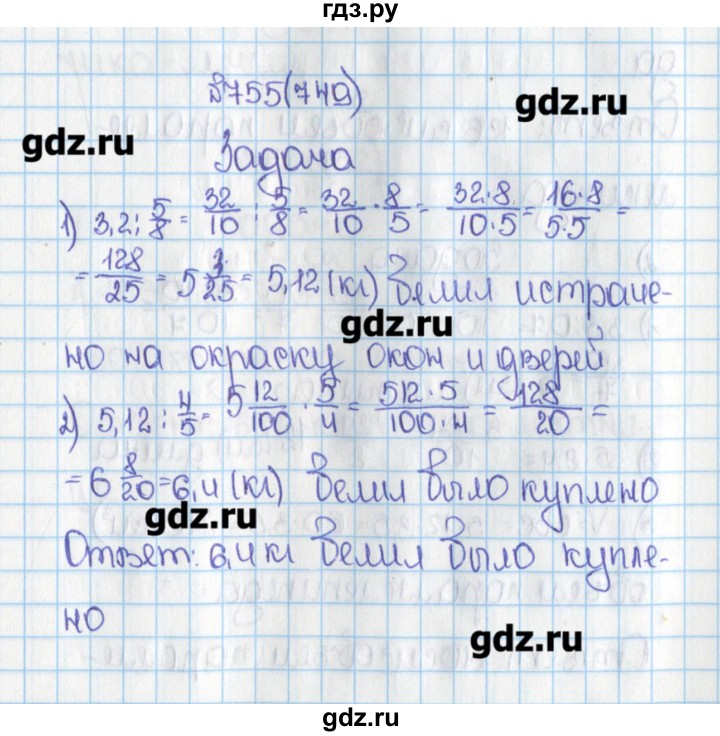 гдз.ру
№755(749)
gdz.ru
gdz.ru
Задача
1) 3,2 : 5/8 = 32/10 : 5/8 = 32/10 · 8/5 = 32·8/10·5 = 16·8/5·5 =
= 128/25 = 5 3/25 = 5,12 (кг) белил истраче-
gdz.ru
но на окраску окон и дверей
2) 5,12 : 4/5 = 5 12/100 · 5/4 = 512·5/100·4 = 128/20 =
= 6 8/20 = 6,4 (кг) белил было куплено
gdz.ru
Ответ: 6,4 кг белил было купле-
но
gdz.ru
gdz.ru